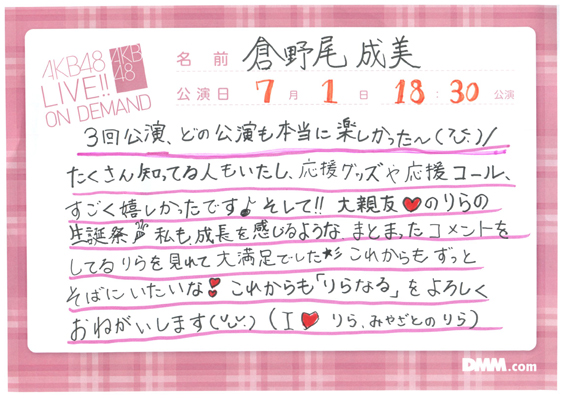 AKB48
LIVE!!
ON DEMAND
AKB
48
名前 倉野尾成美
公演日 7月1日 18:30 公演
3回公演、どの公演も本当に楽しかった〜(でも:)/
たくさん知ってる人もいたし、応援グッズや応援コール、
すごく嬉しかったです♪ そして!! 大親友♥のりらの
生誕祭 私も成長を感じるような まとまったコメントを
してるりらを見れて大満足でした★彡 これからもずっと
そばにいたいな❢ これからも「りらなる」をよろしく
おねがいします(:) (I♥ りら、みやざとのりら)
DMM.com